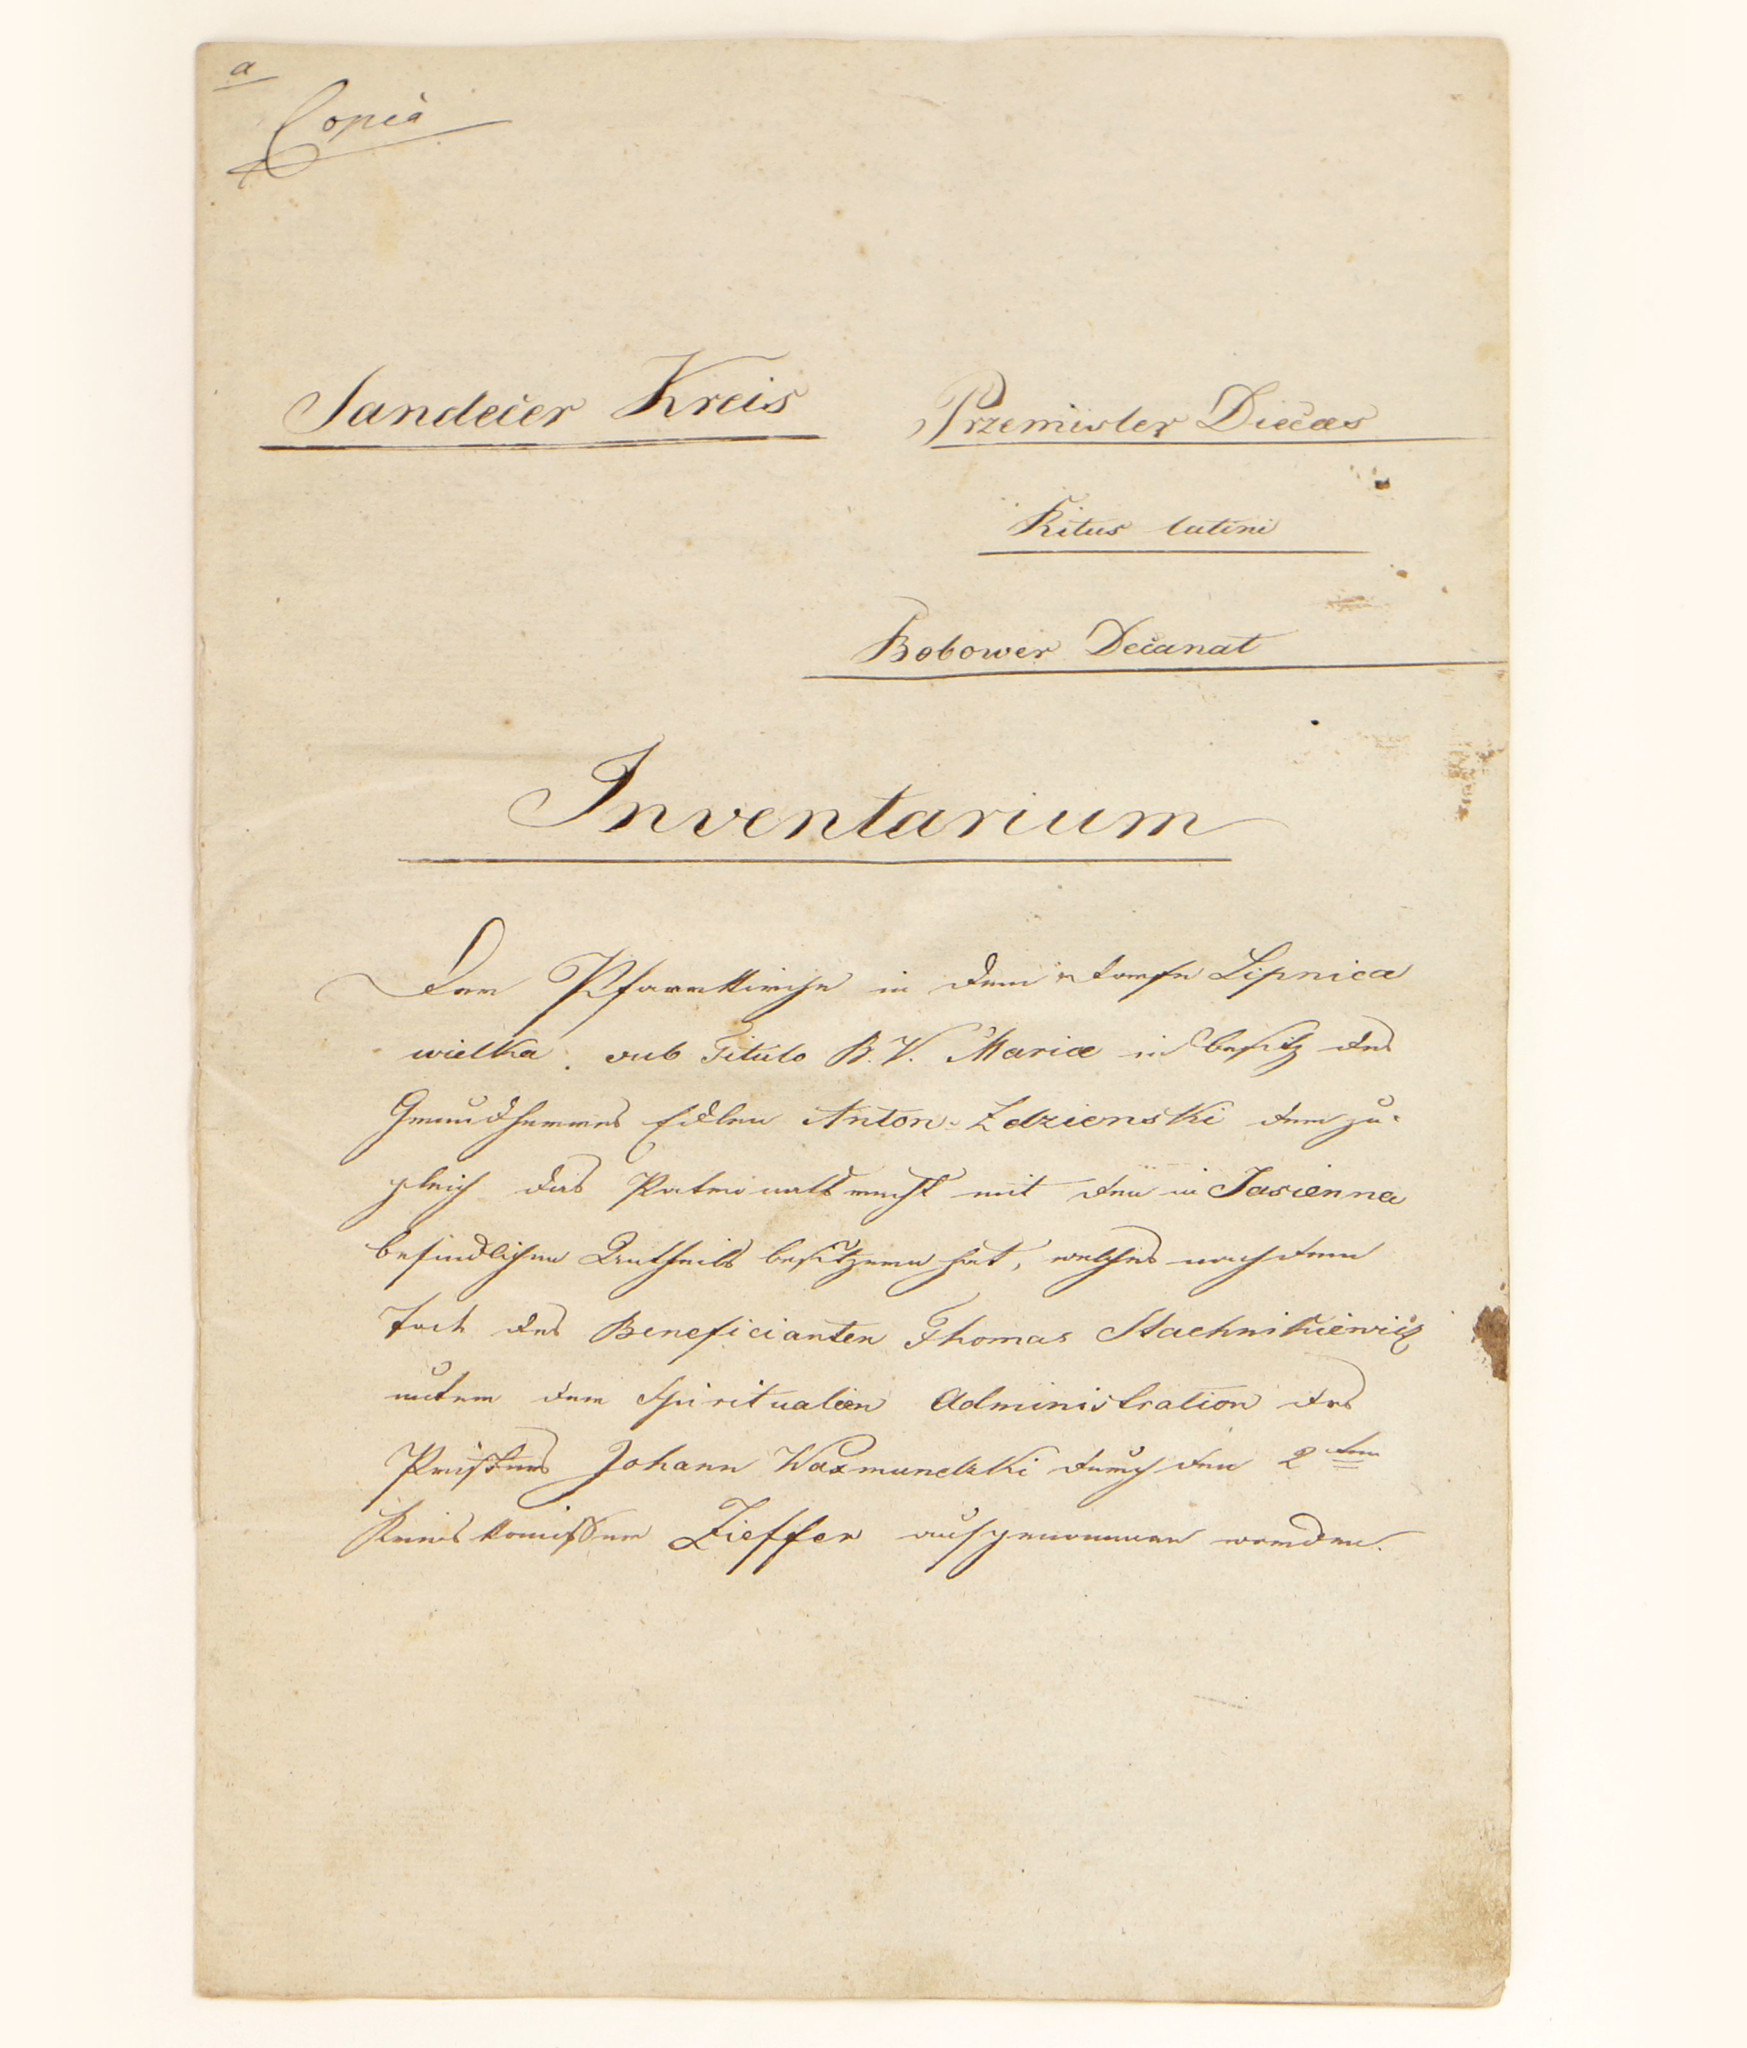 a
Copia
Sandecer Kreis
Przemisler Diecæs
Ritus latini
Bobower Decanat
Inventarium
Der Pfarrkirche in dem Dorfe Lipnica
wielka. sub Titulo B. V. Mariæ im Besitz des
Grundherrns Edlen Anton Zdzienski der zu-
gleich das Patronatsrecht mit den in Jasienna
befindlichen Antheils besitzern hat, welches nach dem
Tode des Beneficianten Thomas Stachnikiewicz
unter der Spiritualien Administration des
Priesters Johann Waxmundzki durch den 2ten
Kreiskomissär Zieffer aufgenommen worden.